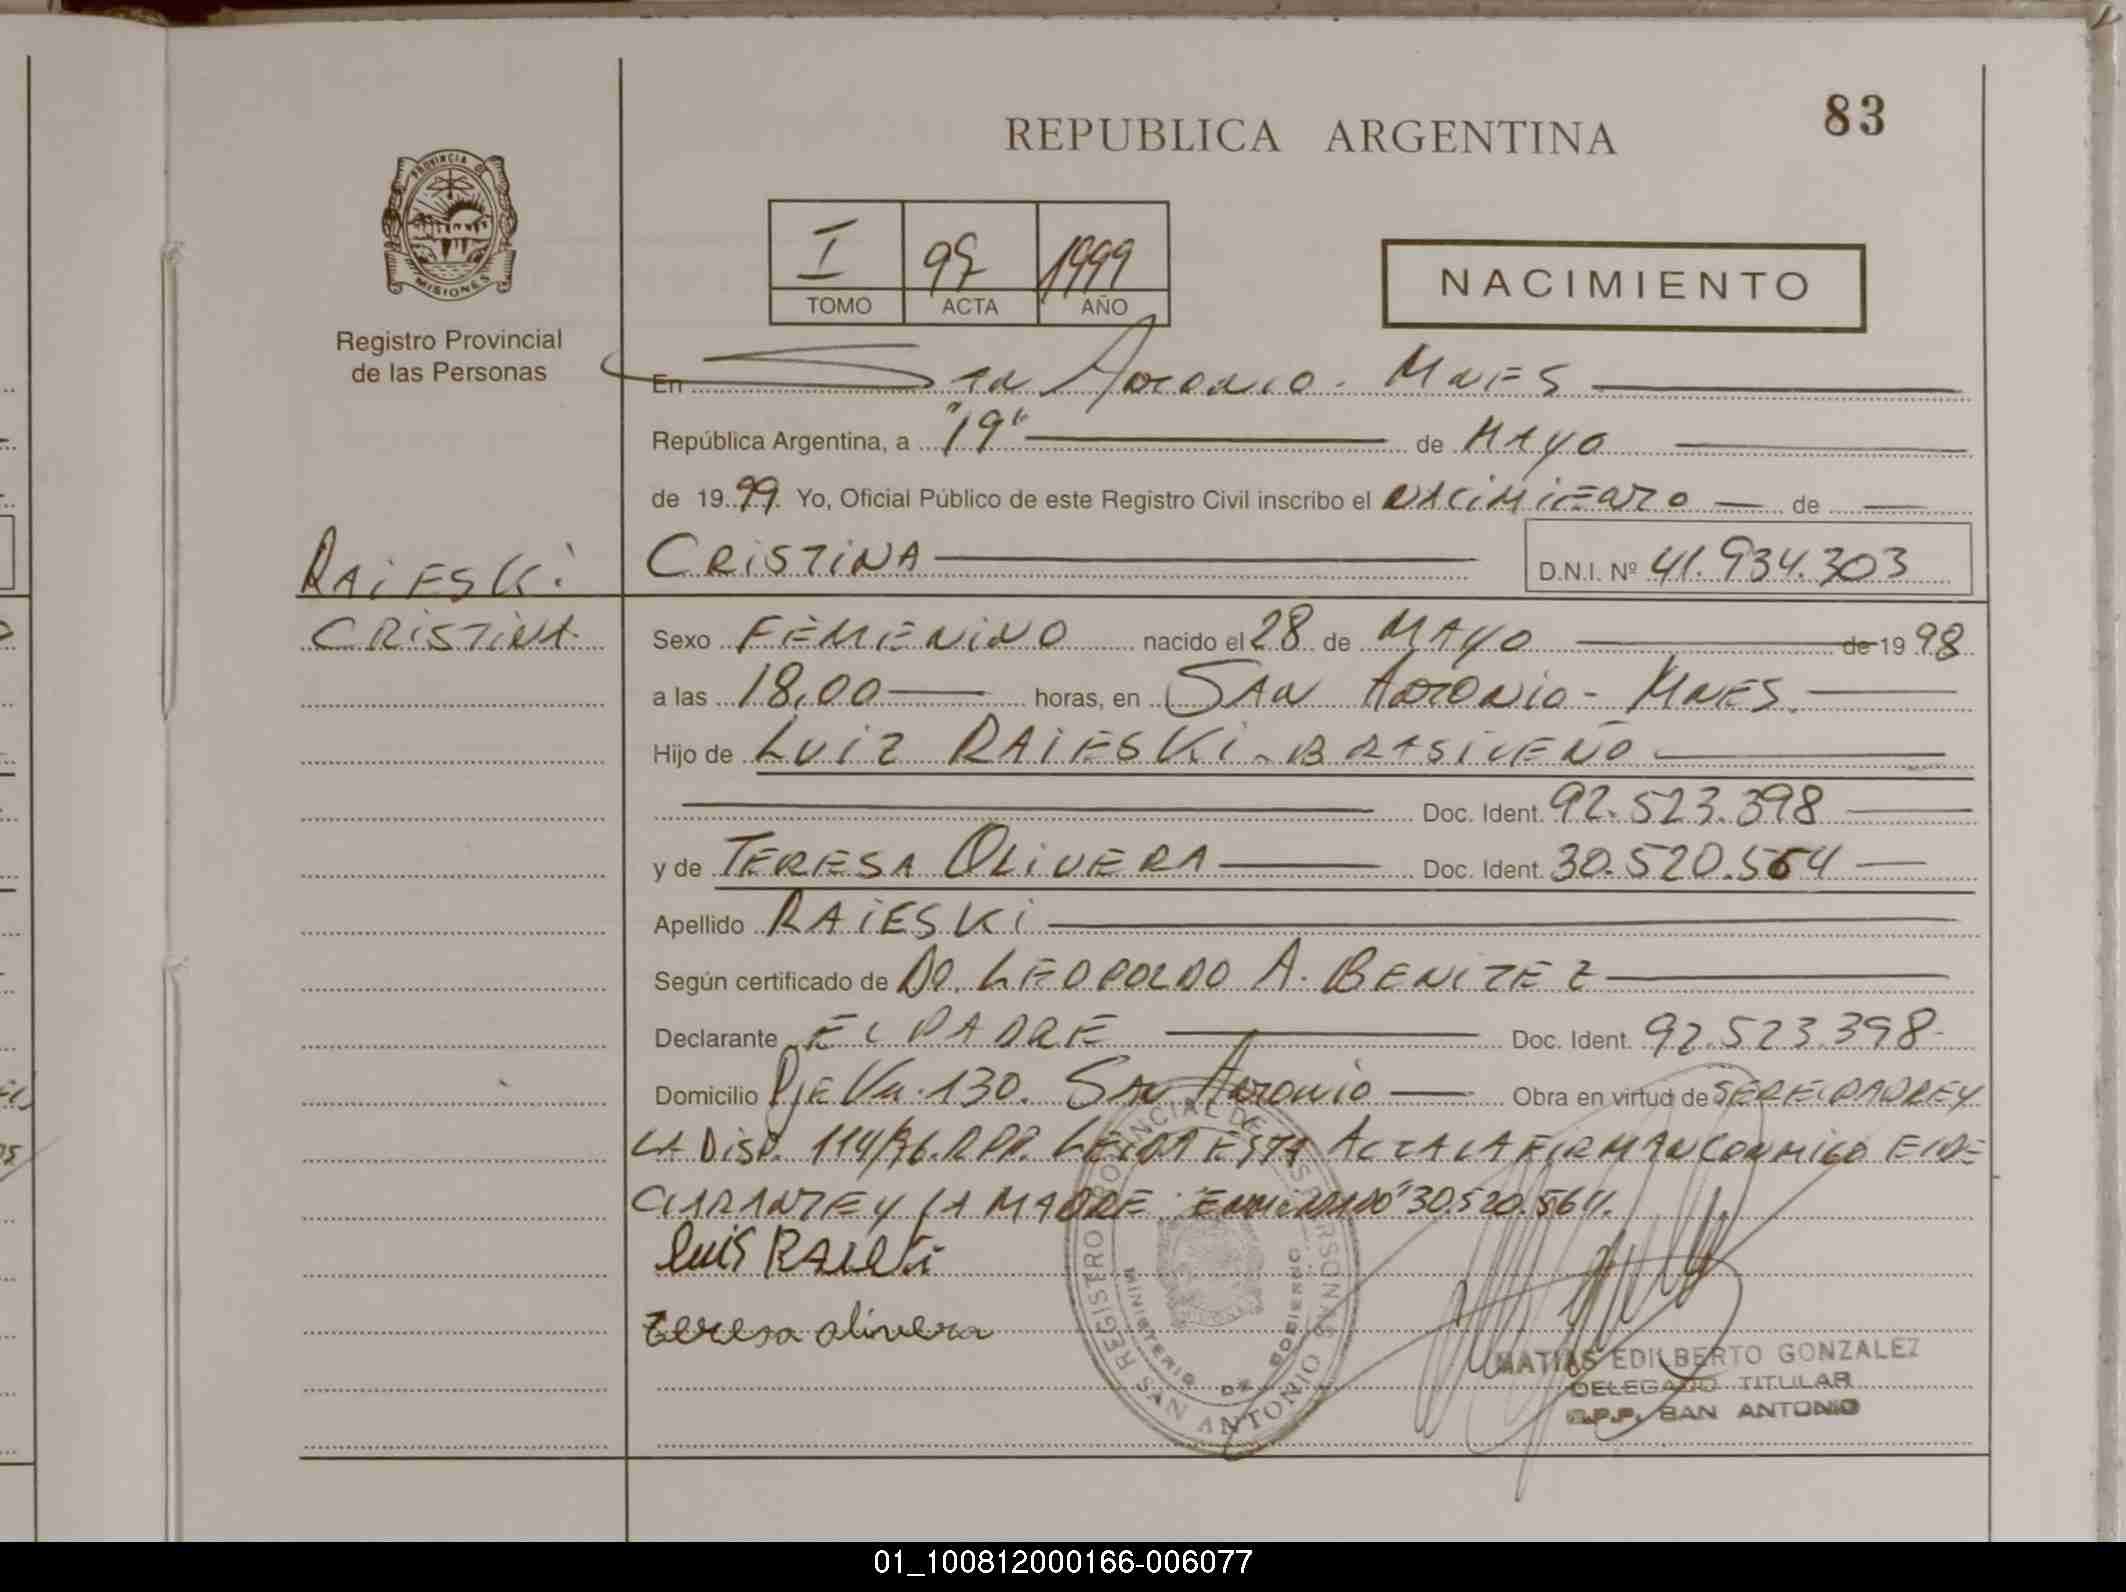 83
REPUBLICA ARGENTINA
PROVINCIA DE
MISIONES
I 99 1999
TOMO ACTA AÑO
NACIMIENTO
Registro Provincial
de las Personas
En San Antonio - Mnes
República Argentina, a "19" de Mayo
de 1999 Yo, Oficial Público de este Registro Civil inscribo el nacimiento de
RAIESKI
CRISTINA
CRISTINA D.N.I. Nº 41.934.303
Sexo FEMENINO nacido el 28 de MAYO de 1998
a las 18,00 horas, en SAN ANTONIO - MNES.
Hijo de LUIZ RAIESKI - BRASILEÑO
Doc. Ident. 92.523.398
y de TERESA OLIVERA Doc. Ident. 30.520.564
Apellido RAIESKI
Según certificado de DR. LEOPOLDO A. BENITEZ
Declarante EL PADRE Doc. Ident. 92.523.398
Domicilio Pje 130. SAN ANTONIO Obra en virtud de SER EL PADRE Y
LA DISP. 114/96. RPP. LEIDA ESTA ACTA LA FIRMAN CONMIGO EL DE
CLARANTE Y LA MADRE. ENMENDADO "30.520.564.
Luis
teresa olivera
REGISTRO PROVINCIAL DE LAS PERSONAS
MINISTERIO DE GOBIERNO
SAN ANTONIO
MATIAS EDILBERTO GONZALEZ
DELEGADO TITULAR
R.P.P. SAN ANTONIO
01_100812000166-006077